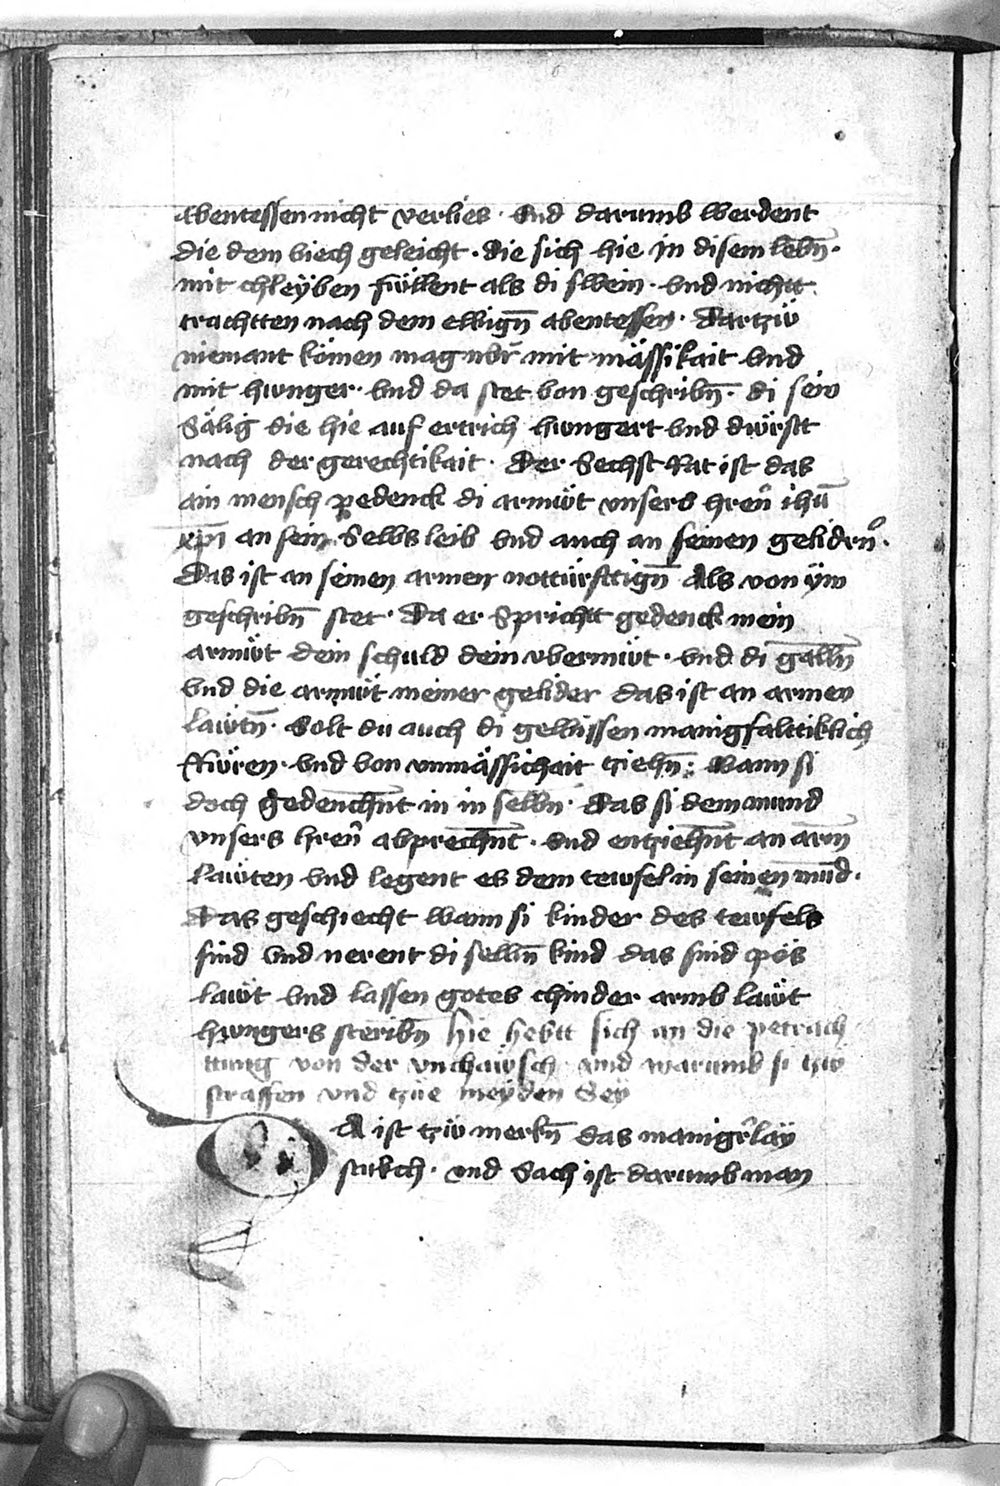 abentessen nicht verlies · vnd darumb werdent
die dem viech geleicht · die sich hie in disem lebn̄ ·
mit chleyben füllent als di swein · vnd nichtt
trachtten nach dem ewign̄ abentessen · Dartzů
niemant kömen mag nŏr mit mässikait vnd
mit hunger · vnd da stet von geschribn̄ · di sein
Sälig die hie auf ertrich hungert vnd dürstt
nach der gerechtikait · Der Sechst Rat ist das
ain mensch pedenck di armüt vnsers hren̄ ihū
xpī an sein Selbs leib vnd auch an seinen gelidrn̄ ·
Das ist an seinen armen nottürfttign̄ Als von ÿm
geschribn̄ stet · Da er Sprichtt gedenck mein
armüt dein schuld dein vbermüt · vnd di galln̄
vnd die armüt meiner gelider das ist an armen
läwtn̄ · Solt du auch di gewissen manigfalttiklich
ffüren · vnd von vnmässichait tziehn̄ · Wann si
doch gedenchn̄t in in selbn̄ · das si dem mund
vnsers hren̄ abprechn̄t · vnd entziehn̄t an arm̄
läwten vnd legent es dem tewfel in seinen mūd ·
Das geschiecht wann si kinder des tewfels
sind vnd nerent di selbn̄ kind das sind pös
läwt vnd lassen gotes chinder armb läwt
hungers steribn̄ hie hebtt sich an die petrach
ttung von der vnchäwsch · vnd warumb si tzw
straffen vnd tzue meyden Sey
DA ist tzů merkn̄ das manigr̄lay
stukch · vnd Sach ist darumb man